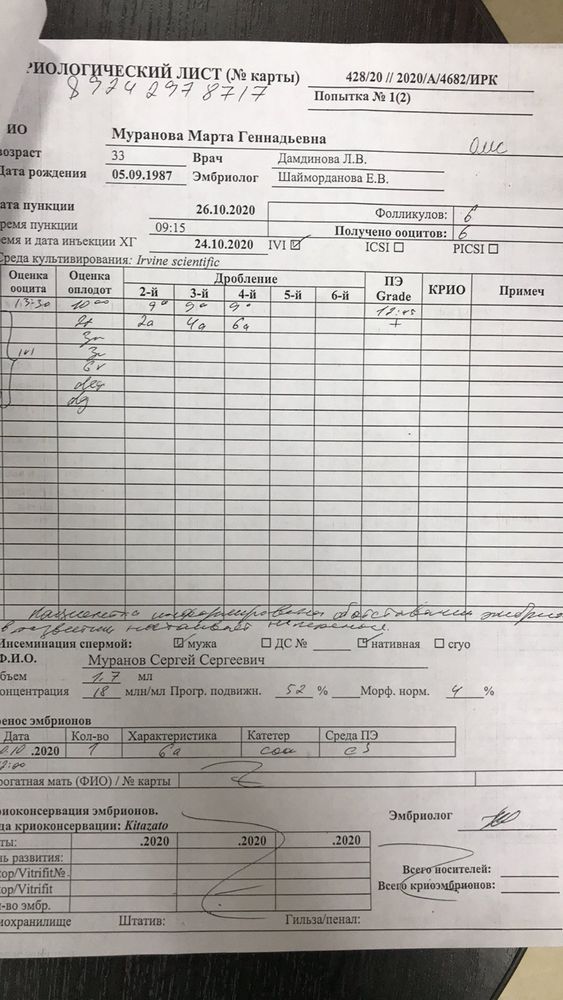 РИОЛОГИЧЕСКИЙ ЛИСТ (№ карты) 428/20 // 2020/А/4682/ИРК
89242978717
Попытка № 1(2)
ИО Муранова Марта Геннадьевна ОМС
возраст 33 Врач Дамдинова Л.В.
Дата рождения 05.09.1987 Эмбриолог Шайморданова Е.В.
ата пункции 26.10.2020 Фолликулов: 6
ремя пункции 09:15 Получено ооцитов: 6
емя и дата инъекции ХГ 24.10.2020 IVI ☑ ICSI ☐ PICSI ☐
Среда культивирования: Irvine scientific
Оценка ооцита Оценка оплодот Дробление ПЭ Grade КРИО Примеч
2-й 3-й 4-й 5-й 6-й
13:30 10:00 9° 9° 9°
2г 2а 4а 6а +
3п
IVI 3п
дег
Пациентка информирована об отставании эмбрио
в развитии, настаивает на переносе.
Инсеминация спермой: ☑ мужа ☐ ДС № ☑ нативная ☐ cryo
Ф.И.О. Муранов Сергей Сергеевич
бъем 1,7 мл
онцентрация 18 млн/мл Прогр. подвижн. 52 % Морф. норм. 4 %
ренос эмбрионов
Дата Кол-во Характеристика Катетер Среда ПЭ
.10.2020 1 6а
2:00
рогатная мать (ФИО) / № карты
риоконсервация эмбрионов. Эмбриолог
да криоконсервации: Kitazato
ты: .2020 .2020 .2020
нь развития:
тор/Vitrifit№ Всего носителей:
тор/Vitrifit Всего криоэмбрионов:
л-во эмбр.
иохранилище Штатив: Гильза/пенал: